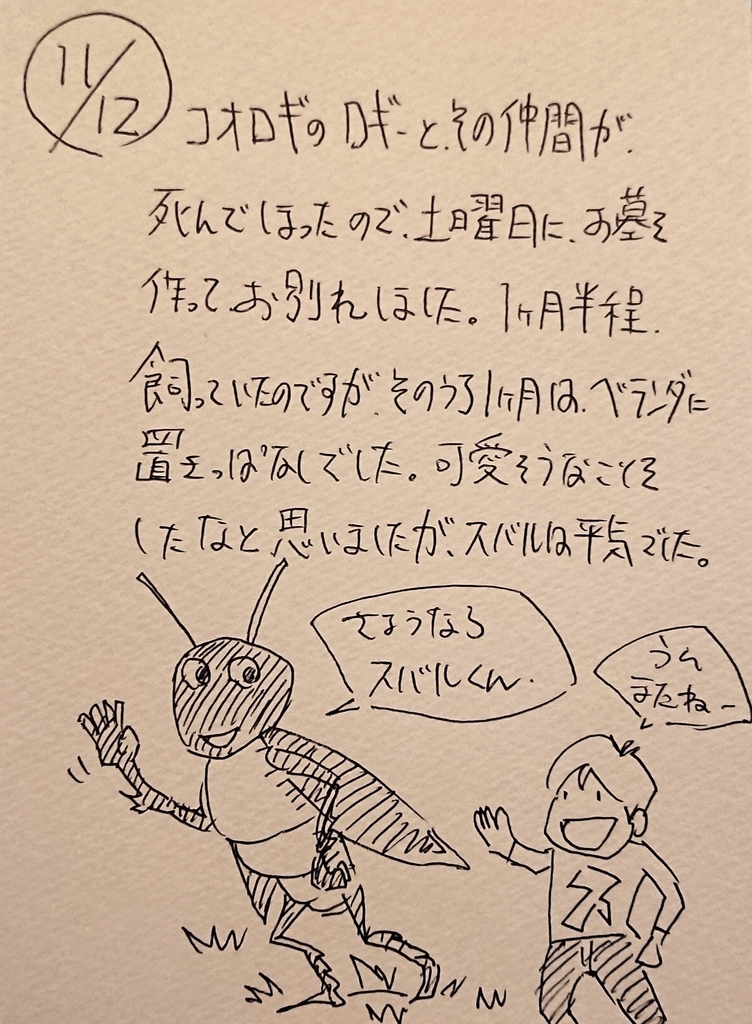 11/12
コオロギのロギーと、その仲間が、
死んでしまったので、土曜日に、お墓を
作って、お別れしました。1ヶ月半程、
飼っていたのですが、そのうち1ヶ月は、ベランダに
置きっぱなしでした。可愛そうなことを
したなと思いましたが、スバルは平気でした。
さようなら
スバルくん。
うん
またねー
ス